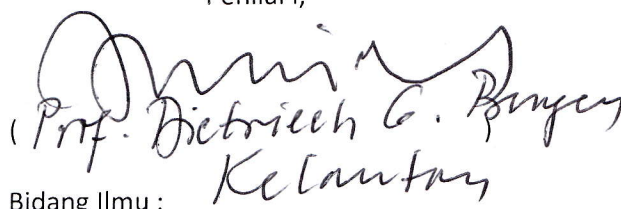 Penilai I,
(Prof. Dietriech G. Bengen
Kelautan
Bidang Ilmu :